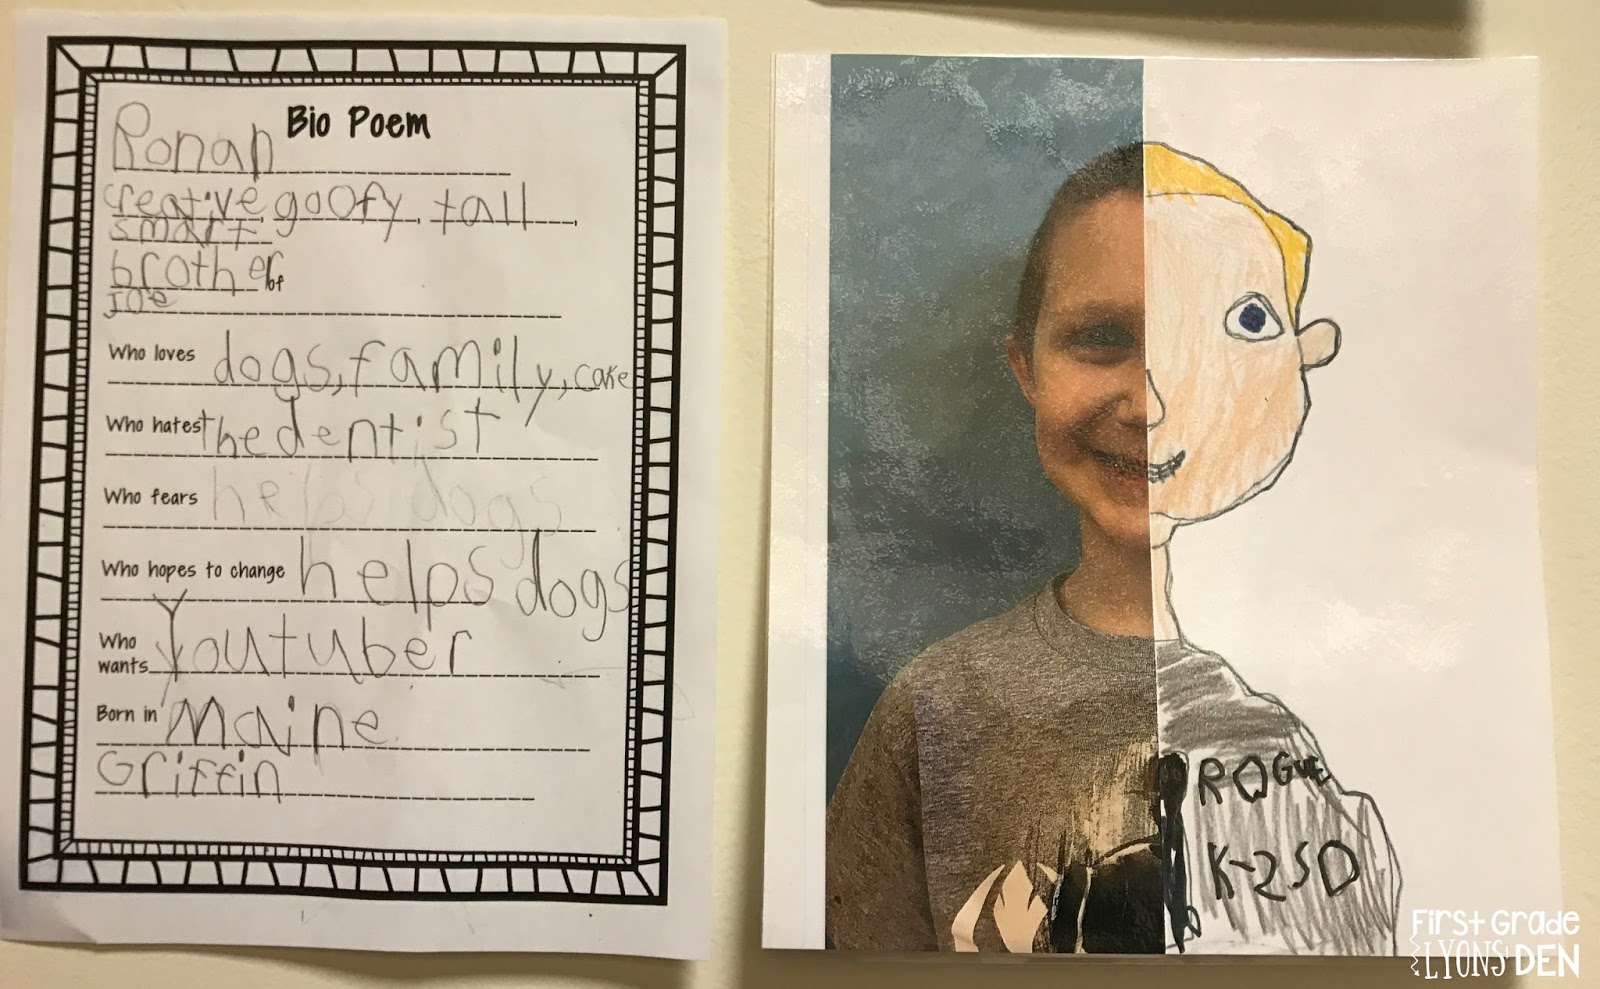 Bio Poem
Ronan
creative goofy, tall,
smart
brother of
Joe
Who loves dogs, family, cake
Who hates the dentist
Who fears helps dogs
Who hopes to change helps dogs
Who wants Youtuber
Born in Maine
Griffin
ROGUE
K-2SO
First Grade
LYONS' DEN